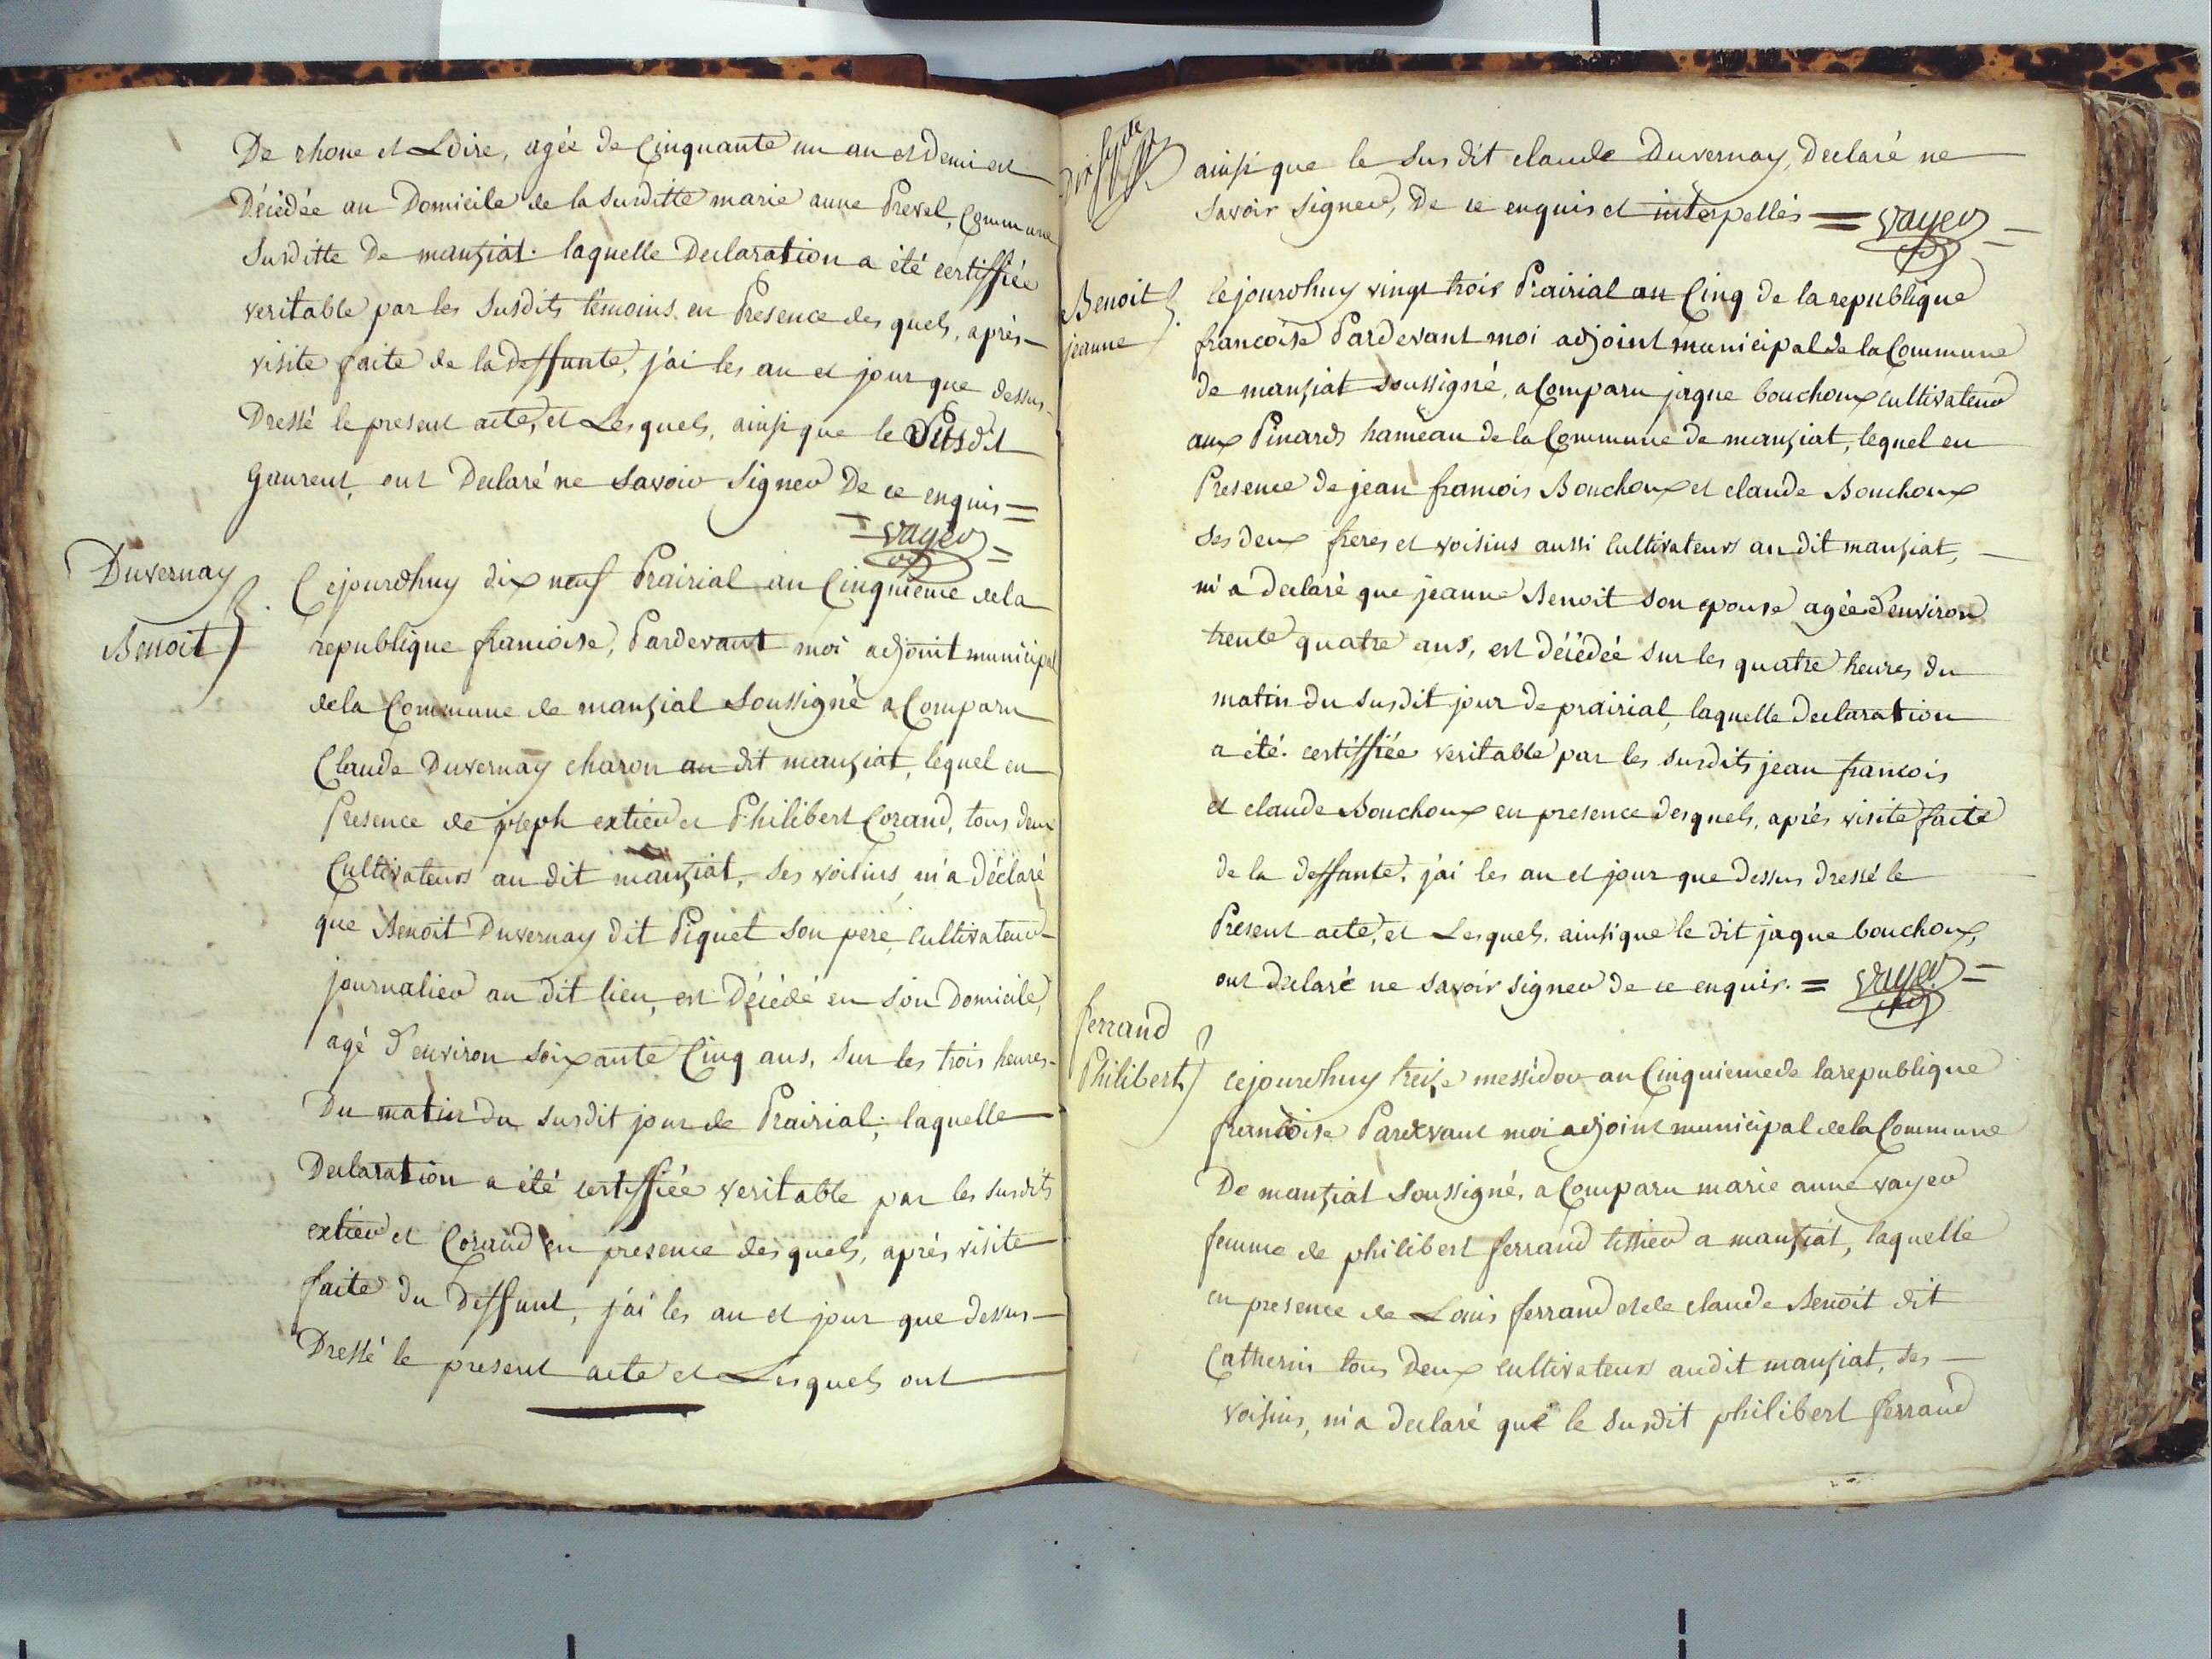 De rhone et Loire, agée de Cinquante un an et Demi est
Décédée au Domicile de la surditte marie anne Prevel, Commune
Surditte De manziat. laquelle Declaration a été certiffiée
veritable par les Susdits témoins en Presence des quels, aprés
visite faite de la deffunte, j'ai les an et jour que dessus
Dressé le present acte, et Lesquels, ainsi que le Susdit
Gaurent, ont Declaré ne Savoir Signer De ce enquis =
= vayer =
Duvernay
Benoit
Cejourdhuy dix neuf Prairial an Cinquieme de la
republique francoise, Pardevant moi adjoint municipal
de la Commune de manziat Soussigné a Comparu
Claude Duvernay charon au dit manziat, lequel en
Presence de joseph extier et Philibert Corand, tous deux
Cultivateurs au dit manziat, ses voisins, m'a déclaré
que Benoit Duvernay dit Piquet son pere, cultivateur
journalier au dit lieu, est Décédé en son Domicile,
agé d'environ soixante Cinq ans, sur les trois heures
Du matin du susdit jour de Prairial; laquelle
Declaration a été certiffiée veritable par les susdits
extier et Corand en presence des quels, aprés visite
faite du Deffunt, j'ai les an et jour que dessus
Dressé le present acte et Lesquels ont
ainsi que le susdit claude Duvernay, Declaré ne
savoir signer, De ce enquis et interpellés = vayer =
Benoit
jeanne
Cejourdhuy vingt trois Prairial an Cinq de la republique
francoise Pardevant moi adjoint municipal de la Commune
de manziat soussigné, a Comparu jaque bouchoux cultivateur
aux Pinards hameau de la Commune de manziat, lequel en
Presence de jean francois Bouchoux et claude Bouchoux
ses deux freres et voisins aussi Cultivateurs au dit manziat,
m'a declaré que jeanne Benoit son epouse agée d'environ
trente quatre ans, est décédée sur les quatre heures du
matin du susdit jour de prairial, laquelle declaration
a été certiffiée veritable par les surdits jean francois
et claude Bouchoux en presence desquels, aprés visite faite
de la deffunte, j'ai les an et jour que dessus dressé le
Present acte, et Lesquels, ainsi que le dit jaque bouchoux,
ont declaré ne savoir signer de ce enquis. = vayer =
ferrand
Philibert
cejourdhuy treize messidor an Cinquieme de la republique
francoise Pardevant moi adjoint municipal de la Commune
De manziat Soussigné, a Comparu marie anne vayer
femme de philibert ferrand tissier a manziat, laquelle
en presence de Louis ferrand et de claude Benoit dit
Catherin tous deux cultivateurs audit manziat, ses
voisins, m'a declaré que le susdit philibert ferrand